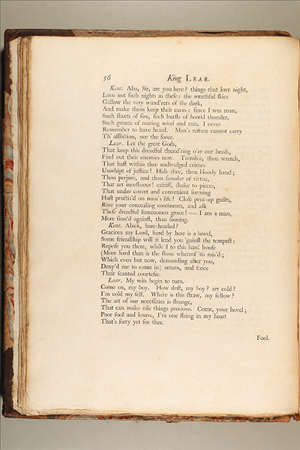 56 King LEAR.
Kent. Alas, Sir, are you here? things that love night,
Love not such nights as these: the wrathful skies
Gallow the very wand'rers of the dark,
And make them keep their caves: since I was man,
Such sheets of fire, such bursts of horrid thunder,
Such groans of roaring wind and rain, I never
Remember to have heard. Man's nature cannot carry
Th' affliction, nor the force.
Lear. Let the great Gods,
That keep this dreadful thund'ring o'er our heads,
Find out their enemies now. Tremble, thou wretch,
That hast within thee undivulged crimes
Unwhipt of justice! Hide thee, thou bloody hand;
Thou perjure, and thou simular of virtue,
That art incestuous! caitiff, shake to pieces,
That under covert and convenient seeming
Hast practis'd on man's life! Close pent-up guilts,
Rive your concealing continents, and ask
These dreadful summoners grace! — I am a man,
More sinn'd against, than sinning.
Kent. Alack, bare-headed?
Gracious my Lord, hard by here is a hovel,
Some friendship will it lend you 'gainst the tempest;
Repose you there, while I to this hard house
(More hard than is the stone whereof 'tis rais'd;
Which even but now, demanding after you,
Deny'd me to come in) return, and force
Their scanted courtesie.
Lear. My wits begin to turn.
Come on, my boy. How dost, my boy? art cold?
I'm cold my self. Where is this straw, my fellow?
The art of our necessities is strange,
That can make vile things precious. Come, your hovel;
Poor fool and knave, I've one string in my heart
That's sorry yet for thee.
Fool.